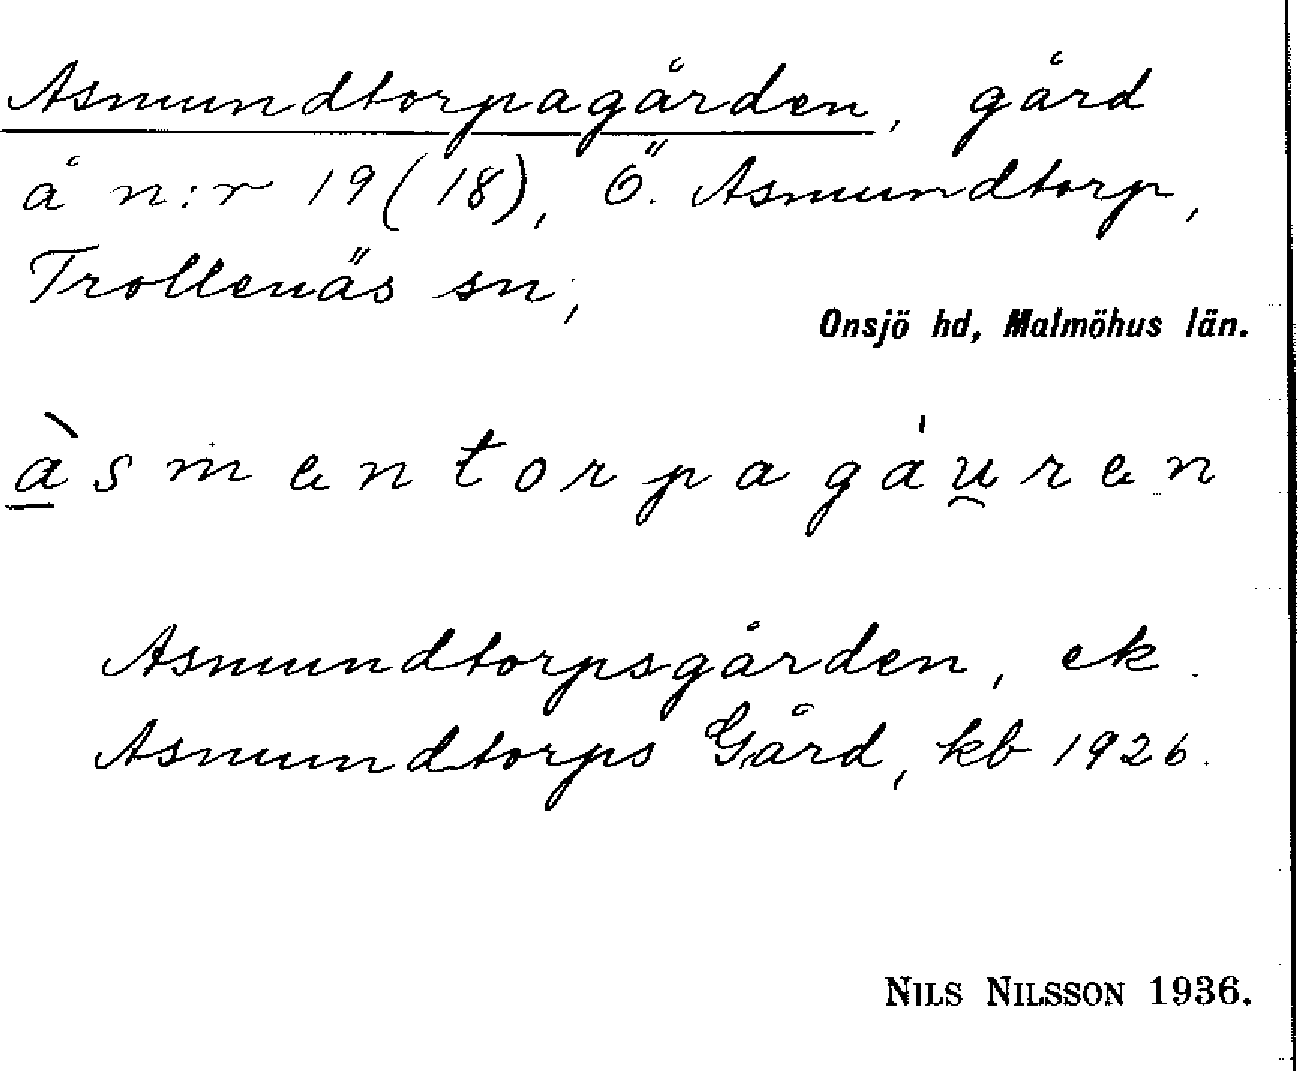 Asmundtorpagården, gård
å n:r 19(18), Ö. Asmundtorp,
Trollenäs sn,
Onsjö hd, Malmöhus län.
à̱smentorpagáu̯ren
Asmundtorpsgården, ek.
Asmundtorps Gård, kb 1926.
NILS NILSSON 1936.